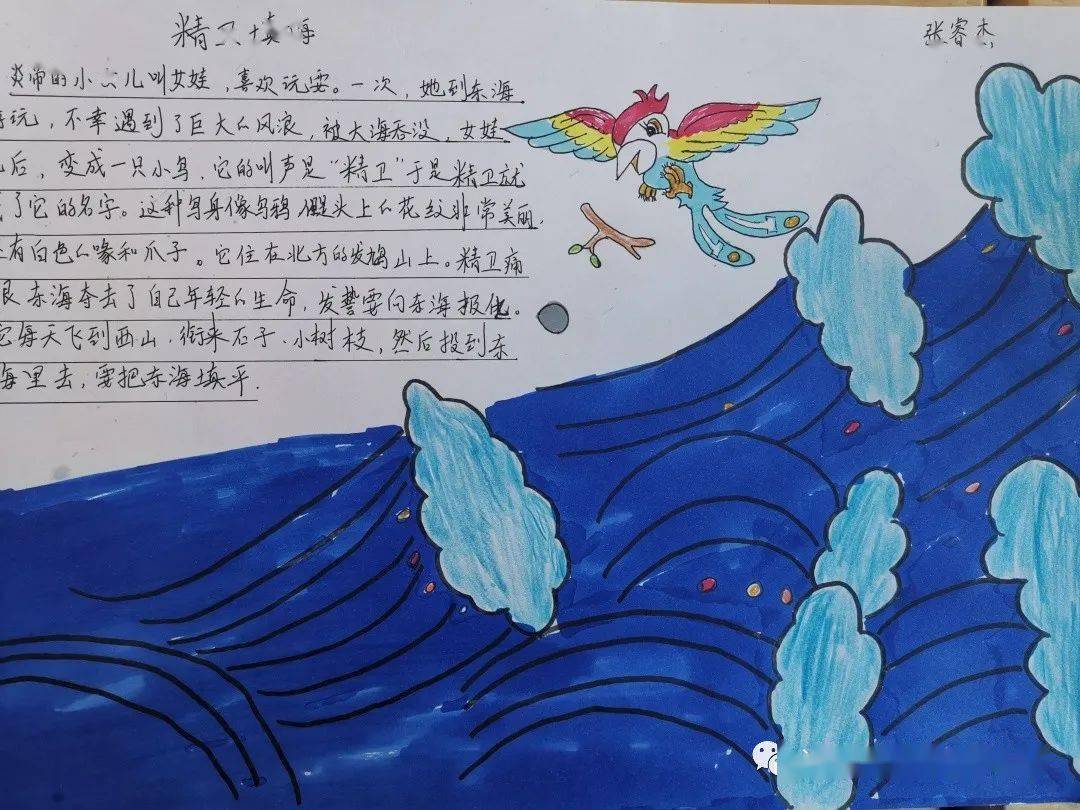 精卫填海
张睿杰
炎帝的小女儿叫女娃，喜欢玩耍。一次，她到东海
游玩，不幸遇到了巨大的风浪，被大海吞没，女娃
死后，变成一只小鸟，它的叫声是“精卫”于是精卫就
成了它的名字。这种鸟身像乌鸦 但头上的花纹非常美丽，
还有白色的喙和爪子。它住在北方的发鸠山上。精卫痛
恨东海夺去了自己年轻的生命，发誓要向东海报仇。
它每天飞到西山，衔来石子、小树枝，然后投到东
海里去，要把东海填平.